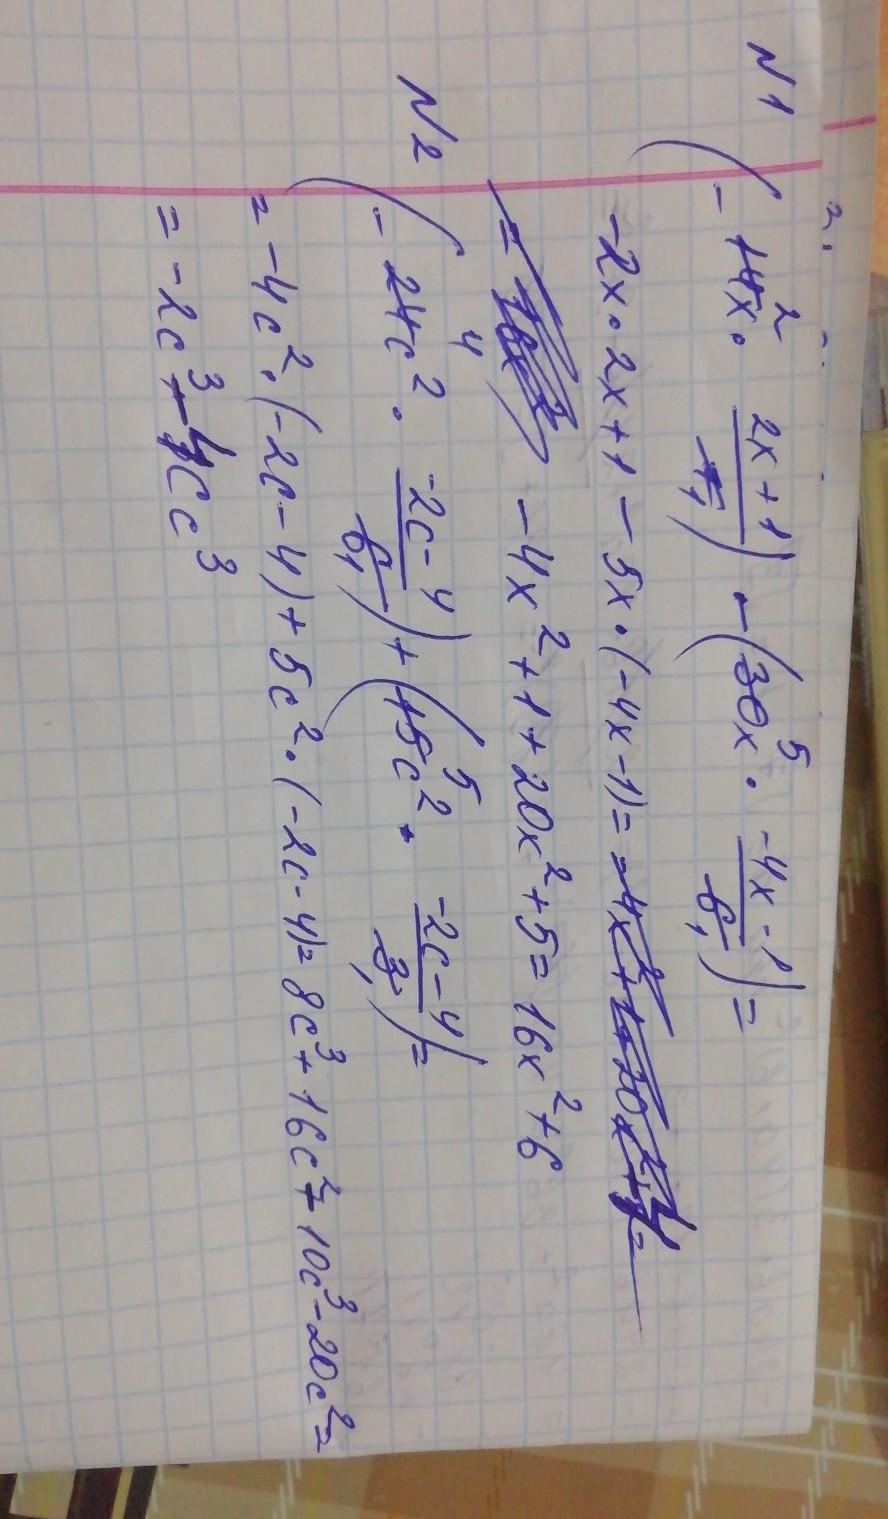 N1
(-14x · 2x+1/7) - (30x · -4x-1/6) =
-2x · 2x+1 - 5x · (-4x-1) =
-4x² + 1 + 20x² + 5 = 16x² + 6
N2
(-24c² · -2c-4/6) + (15c² · -2c-4/3) =
= -4c² · (-2c-4) + 5c² · (-2c-4) = 8c³ + 16c² - 10c³ - 20c² =
= -2c³ - 4c³